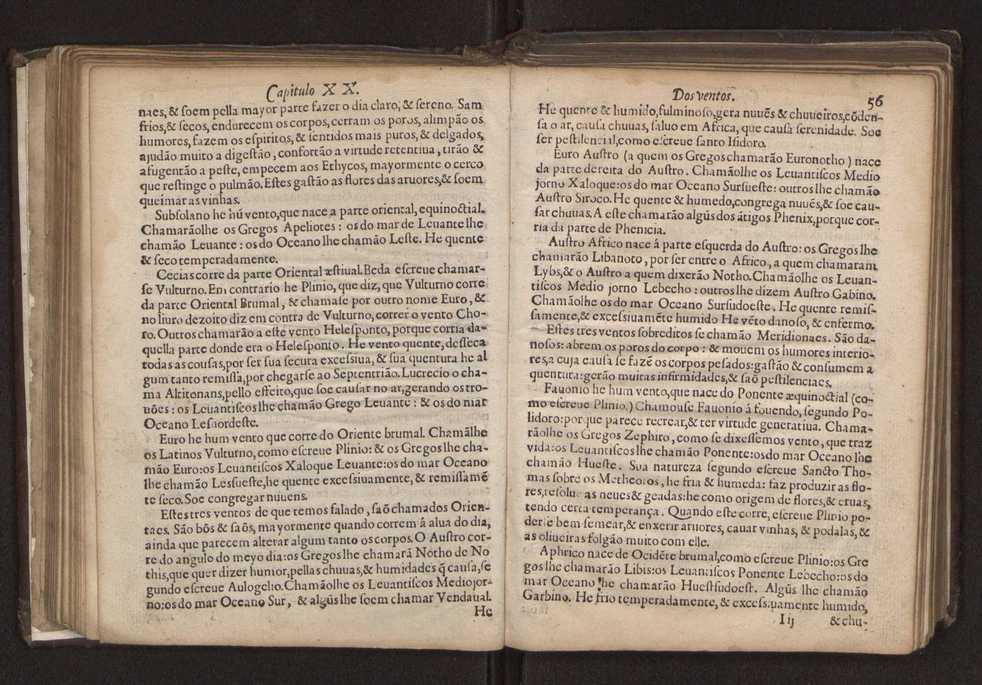 Capitulo X X.
naes, & soem pella mayor parte fazer o dia claro, & sereno. Sam
frios, & secos, endurecem os corpos, cerram os poros, alimpão os
humores, fazem os espiritos, & sentidos mais puros, & delgados,
ajudão muito a digestão, confortão a virtude retentiua, tirão &
afugentão a peste, empecem aos Ethycos, mayormente o cerco
que restinge o pulmão. Estes gastão as flores das aruores, & soem
queimar as vinhas.
Subsolano he hũ vento, que nace a parte oriental, equinoctial.
Chamarãolhe os Gregos Apeliotes: os do mar de Leuante lhe
chamão Leuante: os do Oceano lhe chamão Leste. He quente
& seco temperadamente.
Cecias corre da parte Oriental æstiual. Beda escreue chamar-
se Vulturno. Em contrario he Plinio, que diz, que Vulturno corre
da parte Oriental Brumal, & chamase por outro nome Euro, &
no liuro dezoito diz em contra de Vulturno, correr o vento Cho-
ro. Outros chamarão a este vento Helesponto, porque corria da-
quella parte donde era o Helesponto. He vento quente, desseca
todas as cousas, por ser sua secura excessiua, & sua quentura he al
gum tanto remissa, por chegarse ao Septentrião. Lucrecio o cha-
ma Altitonans, pello effeito, que soe causar no ar, gerando os tro-
uões: os Leuantiscos lhe chamão Grego Leuante: & os do mar
Oceano Lesnordeste.
Euro he hum vento que corre do Oriente brumal. Chamãlhe
os Latinos Vulturno, como escreue Plinio: & os Gregos lhe cha-
mão Euro: os Leuantiscos Xaloque Leuante: os do mar Oceano
lhe chamão Lessueste, he quente excessiuamente, & remissamẽ
te seco. Soe congregar nuuens.
Estes tres ventos de que temos falado, saõ chamados Orien-
taes. São bõs & saõs, mayormente quando correm á alua do dia,
ainda que parecem alterar algum tanto os corpos. O Austro cor-
re do angulo do meyo dia: os Gregos lhe chamarã Notho de No
this, que quer dizer humor, pellas chuuas, & humidades q̃ causa, se
gundo escreue Aulogelio. Chamãolhe os Leuantiscos Mediojor-
no: os do mar Oceano Sur, & algũs lhe soem chamar Vendaual.
He
Dos ventos.
56
He quente & humido, fulminoso, gera nuuẽs & chuueiros, cõden-
sa o ar, causa chuuas, saluo em Africa, que causa serenidade. Soe
ser pestilencial, como escreue santo Isidoro.
Euro Austro (a quem os Gregos chamarão Euronotho) nace
da parte dereita do Austro. Chamãolhe os Leuantiscos Medio
jorno Xaloque: os do mar Oceano Sursueste: outros lhe chamão
Austro Siroco. He quente & humedo, congrega nuuẽs, & soe cau-
sar chuuas. A este chamarão algũs dos ãtigos Phenix, porque cor-
ria da parte de Phenicia.
Austro Africo nace á parte esquerda do Austro: os Gregos lhe
chamarão Libanoto, por ser entre o Africo, a quem chamaram
Lybs, & o Austro a quem dixerão Notho. Chamãolhe os Leuan-
tiscos Medio jorno Lebecho: outros lhe dizem Austro Gabino.
Chamãolhe os do mar Oceano Sursudoeste. He quente remis-
samente, & excessiuamẽte humido He vẽto danoso, & enfermo.
Estes tres ventos sobreditos se chamão Meridionaes. São da-
nosos: abrem os poros do corpo: & mouem os humores interio-
res, a cuja causa se fazẽ os corpos pesados: gastão & consumem a
quentura: gerão muitas infirmidades, & saõ pestilenciaes.
Fauonio he hum vento, que nace do Ponente æquinoctial (co-
mo escreue Plinio.) Chamouse Fauonio á fouendo, segundo Po-
lidoro: porque parece recrear, & ter virtude generatiua. Chama-
rãolhe os Gregos Zephiro, como se dixessemos vento, que traz
vida: os Leuantiscos lhe chamão Ponente: os do mar Oceano lhe
chamão Hueste. Sua natureza segundo escreue Sancto Tho-
mas sobre os Metheoros, he fria & humeda: faz produzir as flo-
res, resolue as neues & geadas: he como origem de flores, & eruas,
tendo certa temperança. Quando este corre, escreue Plinio po-
derse bem semear, & enxerir aruores, cauar vinhas, & podalas, &
as oliueiras folgão muito com elle.
Aphrico nace de Ocidẽte brumal, como escreue Plinio: os Gre
gos lhe chamarão Libis: os Leuantiscos Ponente Lebecho: os do
mar Oceano lhe chamarão Huestsudoest. Algũs lhe chamão
Garbino. He frio temperadamente, & excessiuamente humido,
I ij & chu-